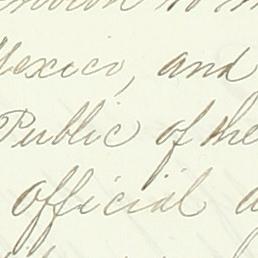 to
Mexico, and
Public of the
official